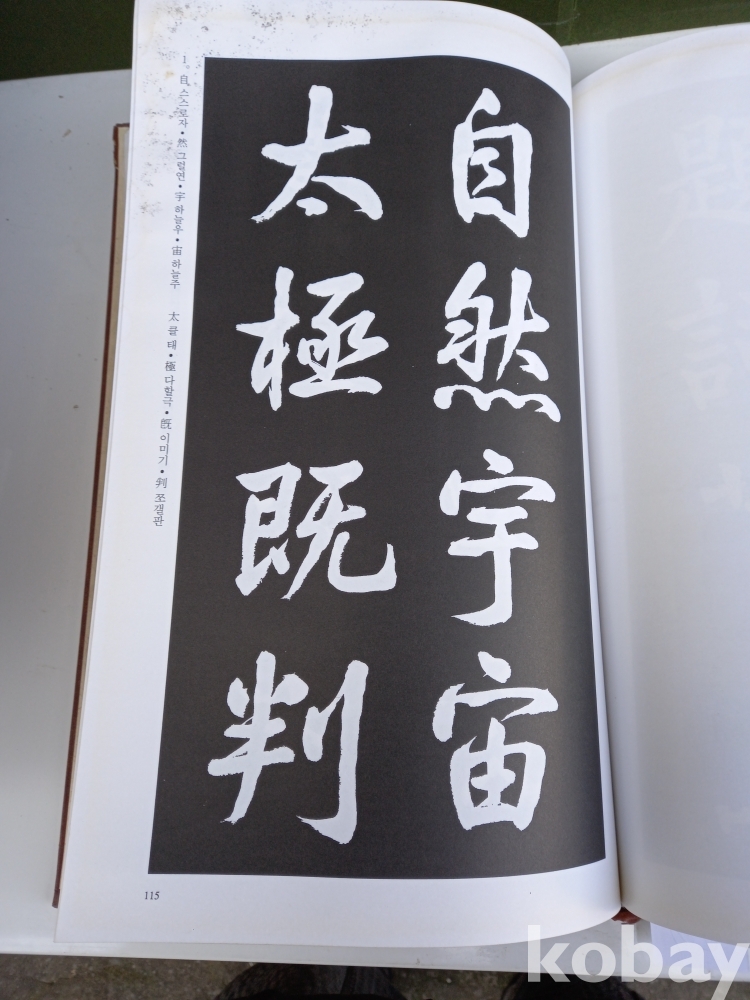 自然宇宙
太極既判
1. 自 스스로자 • 然 그럴연 • 宇 하늘우 • 宙 하늘주 太 클태 • 極 다할극 • 旣 이미기 • 判 쪼갤판
115
kobay